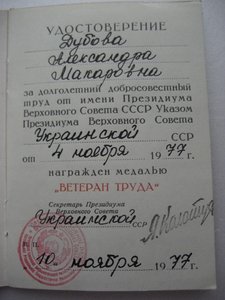 УДОСТОВЕРЕНИЕ
Дубова
Александра
Макаровна
за долголетний добросовестный
труд от имени Президиума
Верховного Совета СССР Указом
Президиума Верховного Совета
Украинской ССР
от 4 ноября 1977 г.
награжден медалью
„ВЕТЕРАН ТРУДА“
Секретарь Президиума
Верховного Совета
Украинской ССР
М. П.
10 ноября 1977 г.